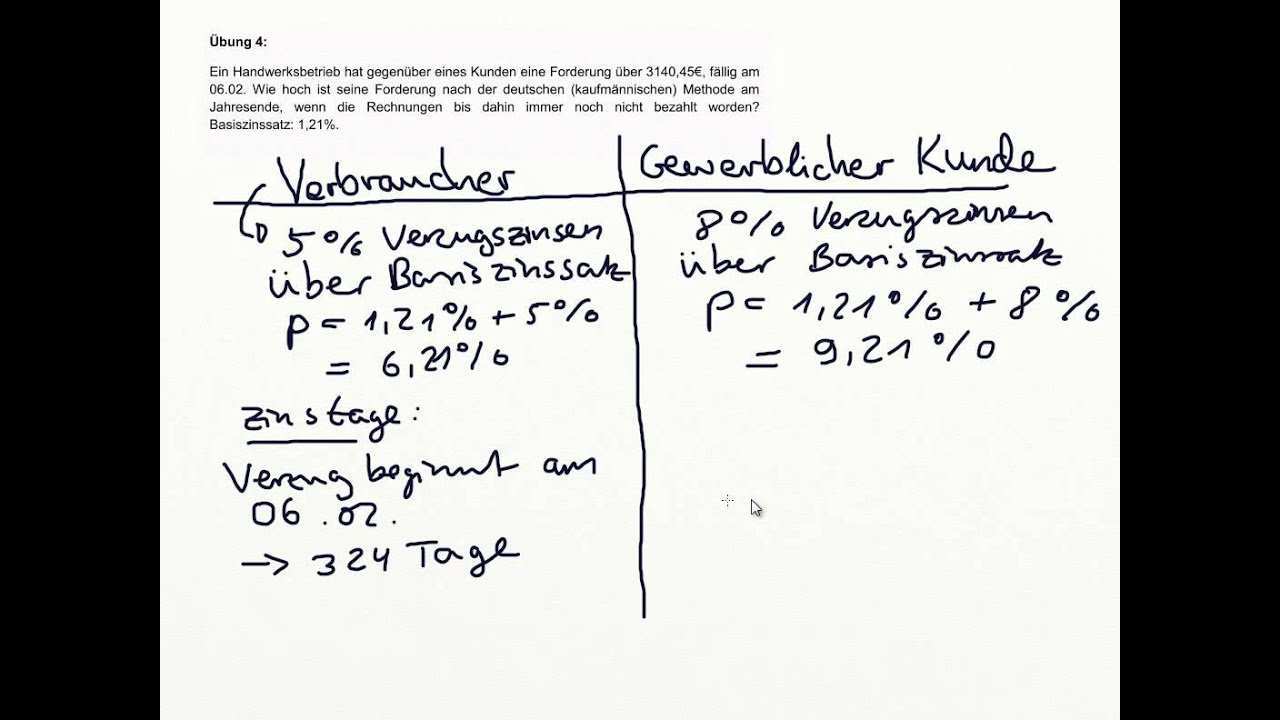 Übung 4:
Ein Handwerksbetrieb hat gegenüber eines Kunden eine Forderung über 3140,45€, fällig am
06.02. Wie hoch ist seine Forderung nach der deutschen (kaufmännischen) Methode am
Jahresende, wenn die Rechnungen bis dahin immer noch nicht bezahlt worden?
Basiszinssatz: 1,21%.
Verbraucher
5% Verzugszinsen
über Basiszinssatz
p = 1,21% + 5%
= 6,21%
Zinstage:
Verzug beginnt am
06.02.
→ 324 Tage
Gewerblicher Kunde
8% Verzugszinsen
über Basiszinssatz
p = 1,21% + 8%
= 9,21%